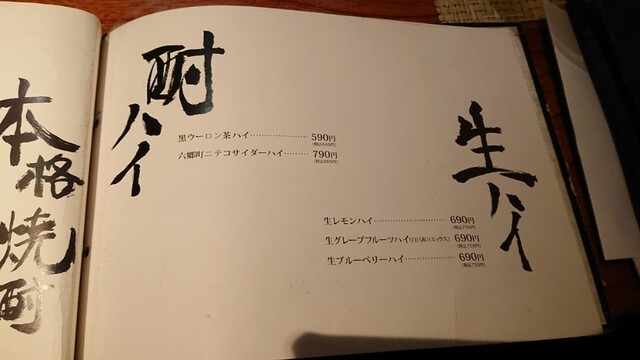 本格焼酎
酎ハイ
黒ウーロン茶ハイ………………590円
(税込649円)
六郷町ニテコサイダーハイ………790円
(税込869円)
生ハイ
生レモンハイ………………690円
(税込759円)
生グレープフルーツハイ(白)(赤)(ミックス) 690円
(税込759円)
生ブルーベリーハイ…………690円
(税込759円)